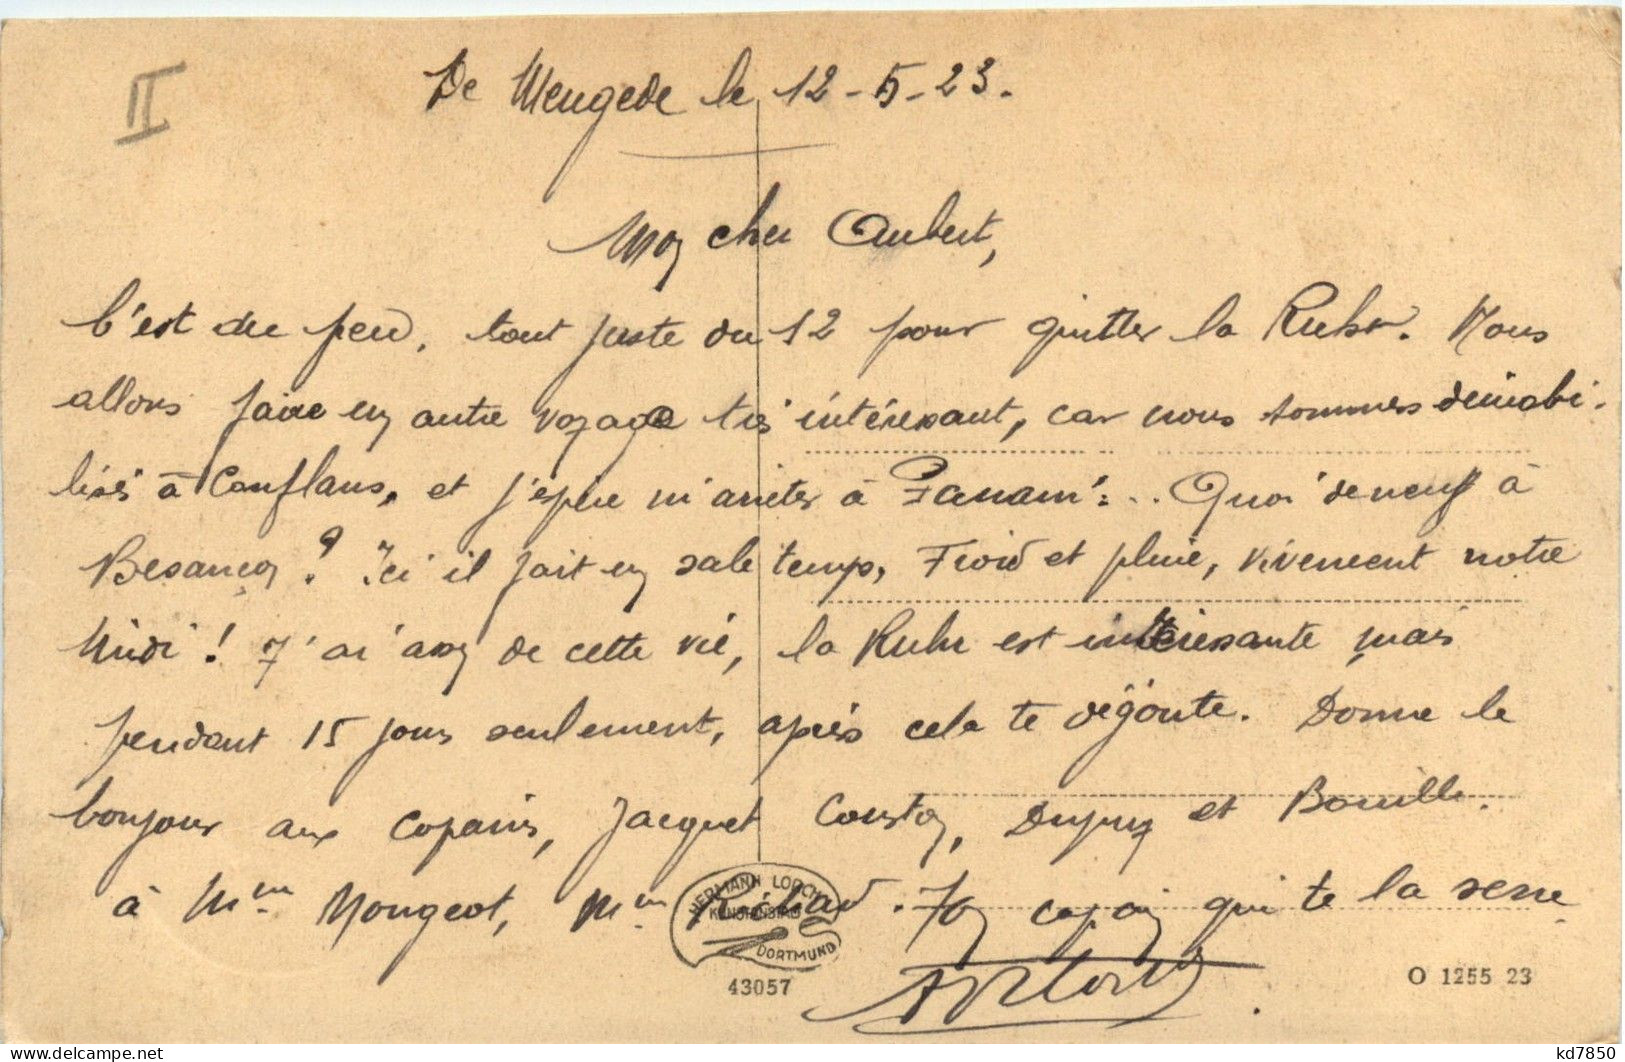 II
De Mengede le 12-5-23.
Mon cher Aubert,
C'est du peu, tout juste du 12 pour quitter la Ruhr. Nous
allons faire un autre voyage très intéressant, car nous sommes démobi-
lisés à Conflans, et j'espère m'arrêter à Panam'... Quoi de neuf à
Besançon ? Ici il fait un sale temps, Froid et pluie, vivement notre
Midi ! J'ai assez de cette vie, la Ruhr est intéressante mais
pendant 15 jours seulement, après cela te dégoute. Donne le
bonjour aux copains, Jacquet Couston, Dupuy et Bouille.
à Mme Mougeot, Mme Richard. Ton copain qui te la serre
HERMANN LORCH
KUNSTANSTALT
DORTMUND
43057
O 1255 23
kd7850